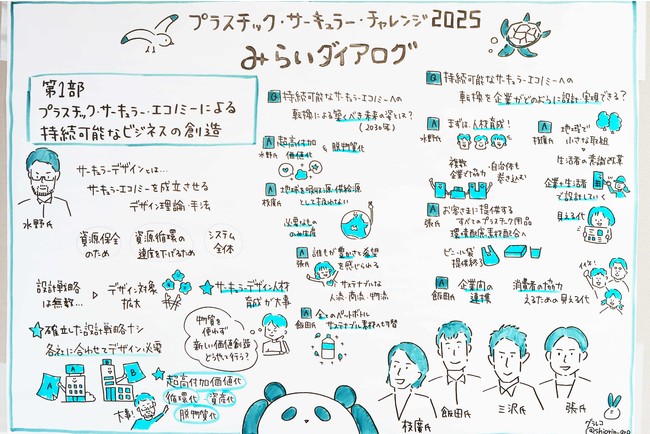 プラスチック・サーキュラー・チャレンジ2025
みらいダイアログ
第1部
プラスチック・サーキュラー・エコノミーによる
持続可能なビジネスの創造
水野氏
サーキュラーデザインとは…
サーキュラーエコノミーを成立させる
デザイン理論・手法
資源保全
のため
資源循環の
速度を下げるため
システム
全体
設計戦略
は無数…
デザイン対象
拡大
★サーキュラーデザイン人材
育成が大事
★確立した設計戦略ナシ
各社に合わせてデザイン必要
A
B
大事!
★超高付加価値化
循環化
資産化
脱物質化
物質を
使わず
新しい価値創造
どうやって行う?
Q 持続可能なサーキュラーエコノミーへの
転換による築くべき未来の姿とは?
(2030年)
A 超高付加
価値化
脱物質化
水野氏
A 地球を吸収源・供給源
として扱わない
枝廣氏
必要なもの
のみ生産
A 誰もが豊かさと希望
を感じられる
張氏
サステナブルな
人流・商流・物流
A 全てのペットボトル
サステナブル素材への切替
飯田氏
Q 持続可能なサーキュラーエコノミーへの
転換を企業がどのように設計、実現できる?
A まずは、人材育成!
水野氏
複数
企業で協力
自治体も
巻き込む
A 地域で
小さな取組
枝廣氏
生活者の意識改革
企業と生活者
で設計していく
見える化
A お客さまに提供する
すべてのプラスチック用品
環境配慮素材配合へ
張氏
ビニール袋
提供減らす
A 企業間の
連携
飯田氏
消費者の協力
えるための見える化
イイネ!
枝廣氏
飯田氏
三沢氏
張氏
グラレコ